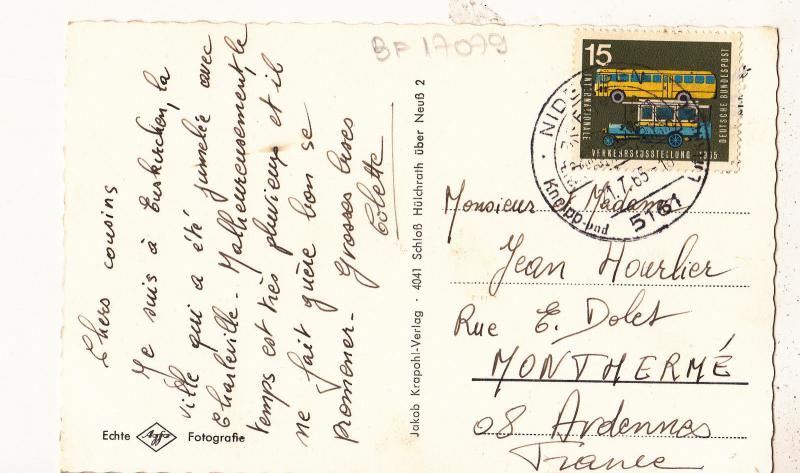 BF 17079
Chers cousins
Je suis à Euskirchen, la
ville qui a été jumelée avec
Charleville - Malheureusement, le
temps est très pluvieux et il
ne fait guère bon se
promener - Grosses bises
Colette
Echte Agfa Fotografie
Jakob Krapohl-Verlag · 4041 Schloß Hülchrath über Neuß 2
15
INTERNATIONALE
VERKEHRSAUSSTELLUNG 1965
DEUTSCHE BUNDESPOST
Kneipp-
5161
Monsieur Madame
Jean Hourlier
Rue E. Dolet
MONTHERMÉ
08 Ardennes
France